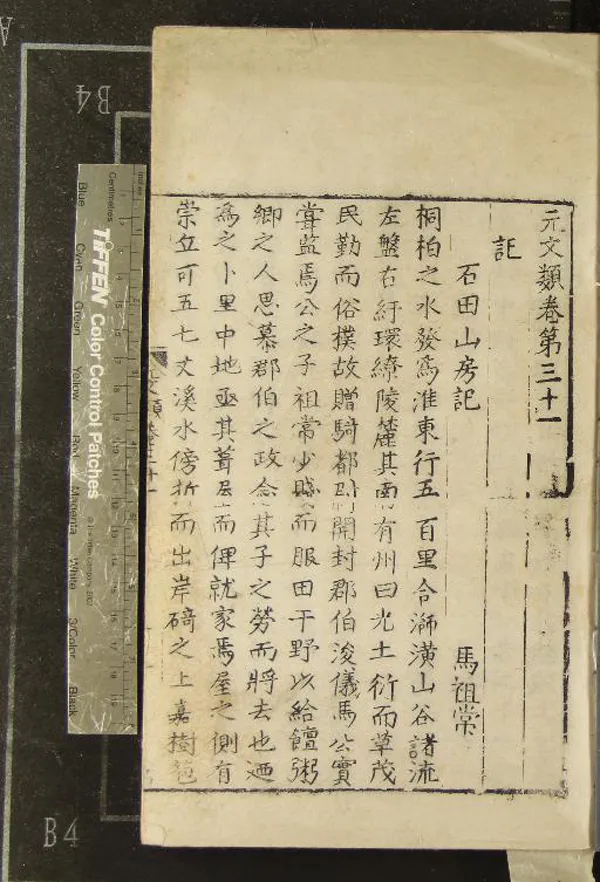 元文類卷第三十一
記
石田山房記
馬祖常
桐柏之水發爲淮東行五百里合溮潢山谷諸流
左盤右紆環繚陵麓其南有州曰光土衍而草茂
民勤而俗樸故贈騎都尉開封郡伯浚儀馬公實
嘗監焉公之子祖常少賤而服田于野以給饘粥
鄉之人思慕郡伯之政念其子之勞而將去也廼
爲之卜里中地亟其葺屋而俾就家焉屋之側有
崇丘可五七丈溪水傍折而出岸碕之上嘉樹苞
文類卷三十一
A
B4
B4
TIFFEN Color Control Patches
Centimetres
Inches
Blue
Cyan
Green
Yellow
Red
Magenta
White
3/Color
Black